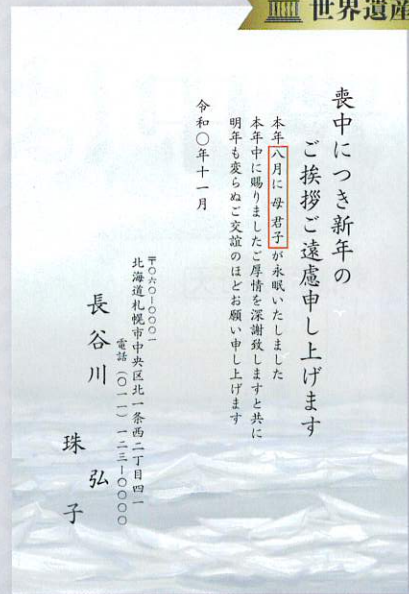 世界遺産
喪中につき新年の
ご挨拶ご遠慮申し上げます
本年八月に 母 君子 が永眠いたしました
本年中に賜りましたご厚情を深謝致しますと共に
明年も変らぬご交誼のほどお願い申し上げます
令和〇年十一月
〒〇六〇-〇〇〇一
北海道札幌市中央区北一条西二丁目四一
電話(〇一一)一二三-〇〇〇〇
長谷川 弘
珠子